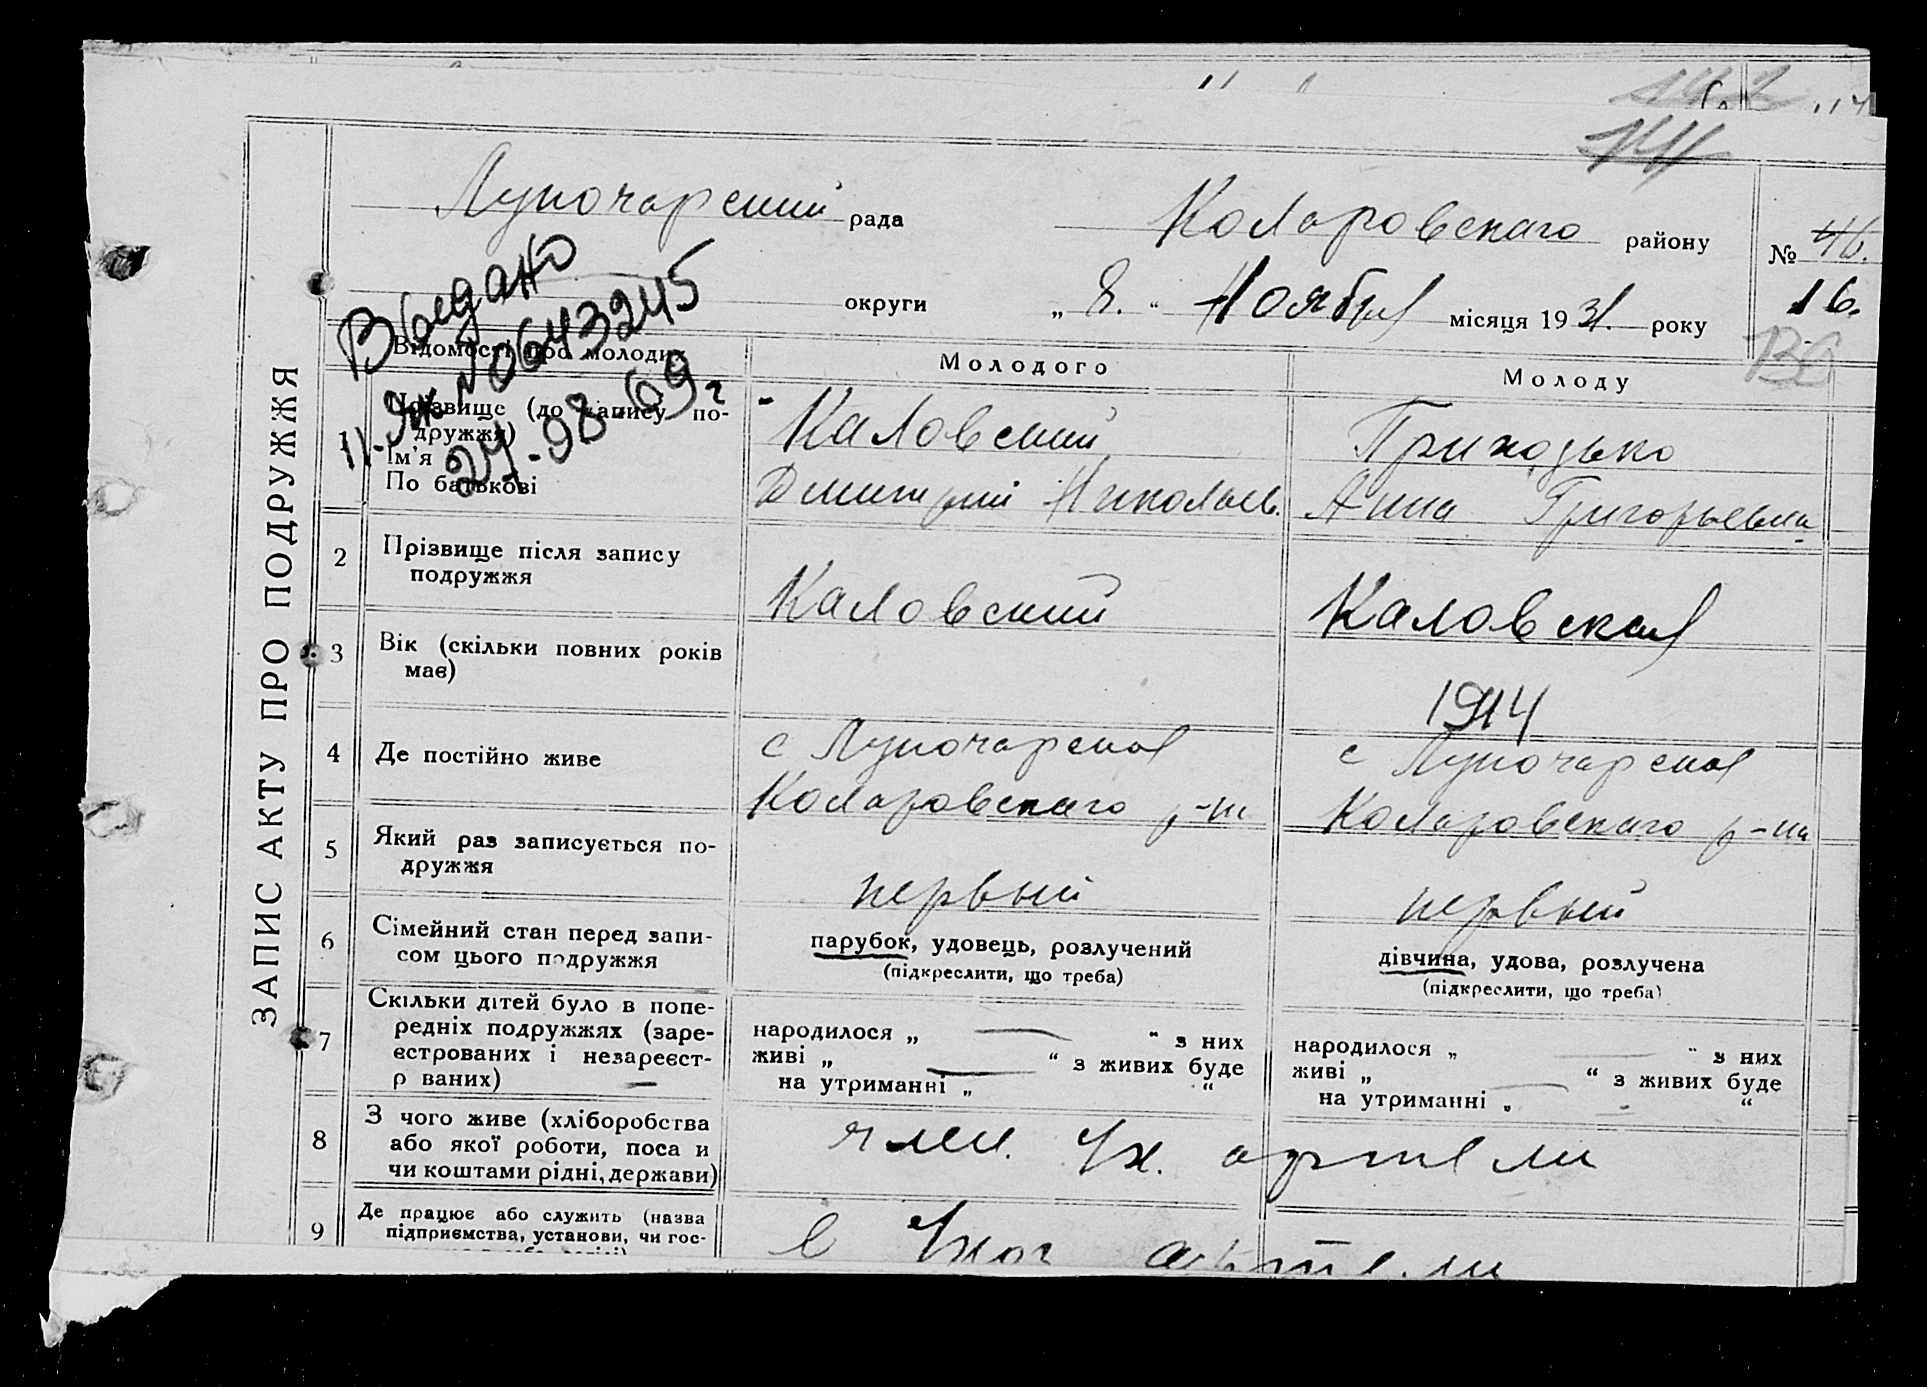 144
Луночарский рада Коларовскаго району № 46.
округи „ 8. " Ноября місяця 1931. року 16.
Выдано
II-ЯЖ №0643245
27-08-69г
ЗАПИС АКТУ ПРО ПОДРУЖЖЯ
Відомості про молодих Молодого Молоду
1 Прізвище (до запису по-
дружжя)
Ім'я
По батькові
Каловский
Дмитрий Николаев.
Приходько
Анна Григорьевна
2 Прізвище після запису
подружжя
Каловский Каловская
3 Вік (скільки повних років
має)
1914
4 Де постійно живе
с Луночарская
Коларовскаго р-на
с Луночарская
Коларовскаго р-на
5 Який раз записується по-
дружжя
первый первый
6 Сімейний стан перед запи-
сом цього подружжя
парубок, удовець, розлучений
(підкреслити, що треба)
дівчина, удова, розлучена
(підкреслити, що треба)
7 Скільки дітей було в попе-
редніх подружжях (заре-
єстрованих і незареєст-
р ваних) —
народилося „ — " з них
живі „ — " з живих буде
на утриманні „ "
народилося „ — " з них
живі „ — " з живих буде
на утриманні „ "
8 З чого живе (хліборобства
або якої роботи, поса и
чи коштами рідні, держави)
член. артели
9 Де працює або служить (назва
підприємства, установи, чи гос-
в артели